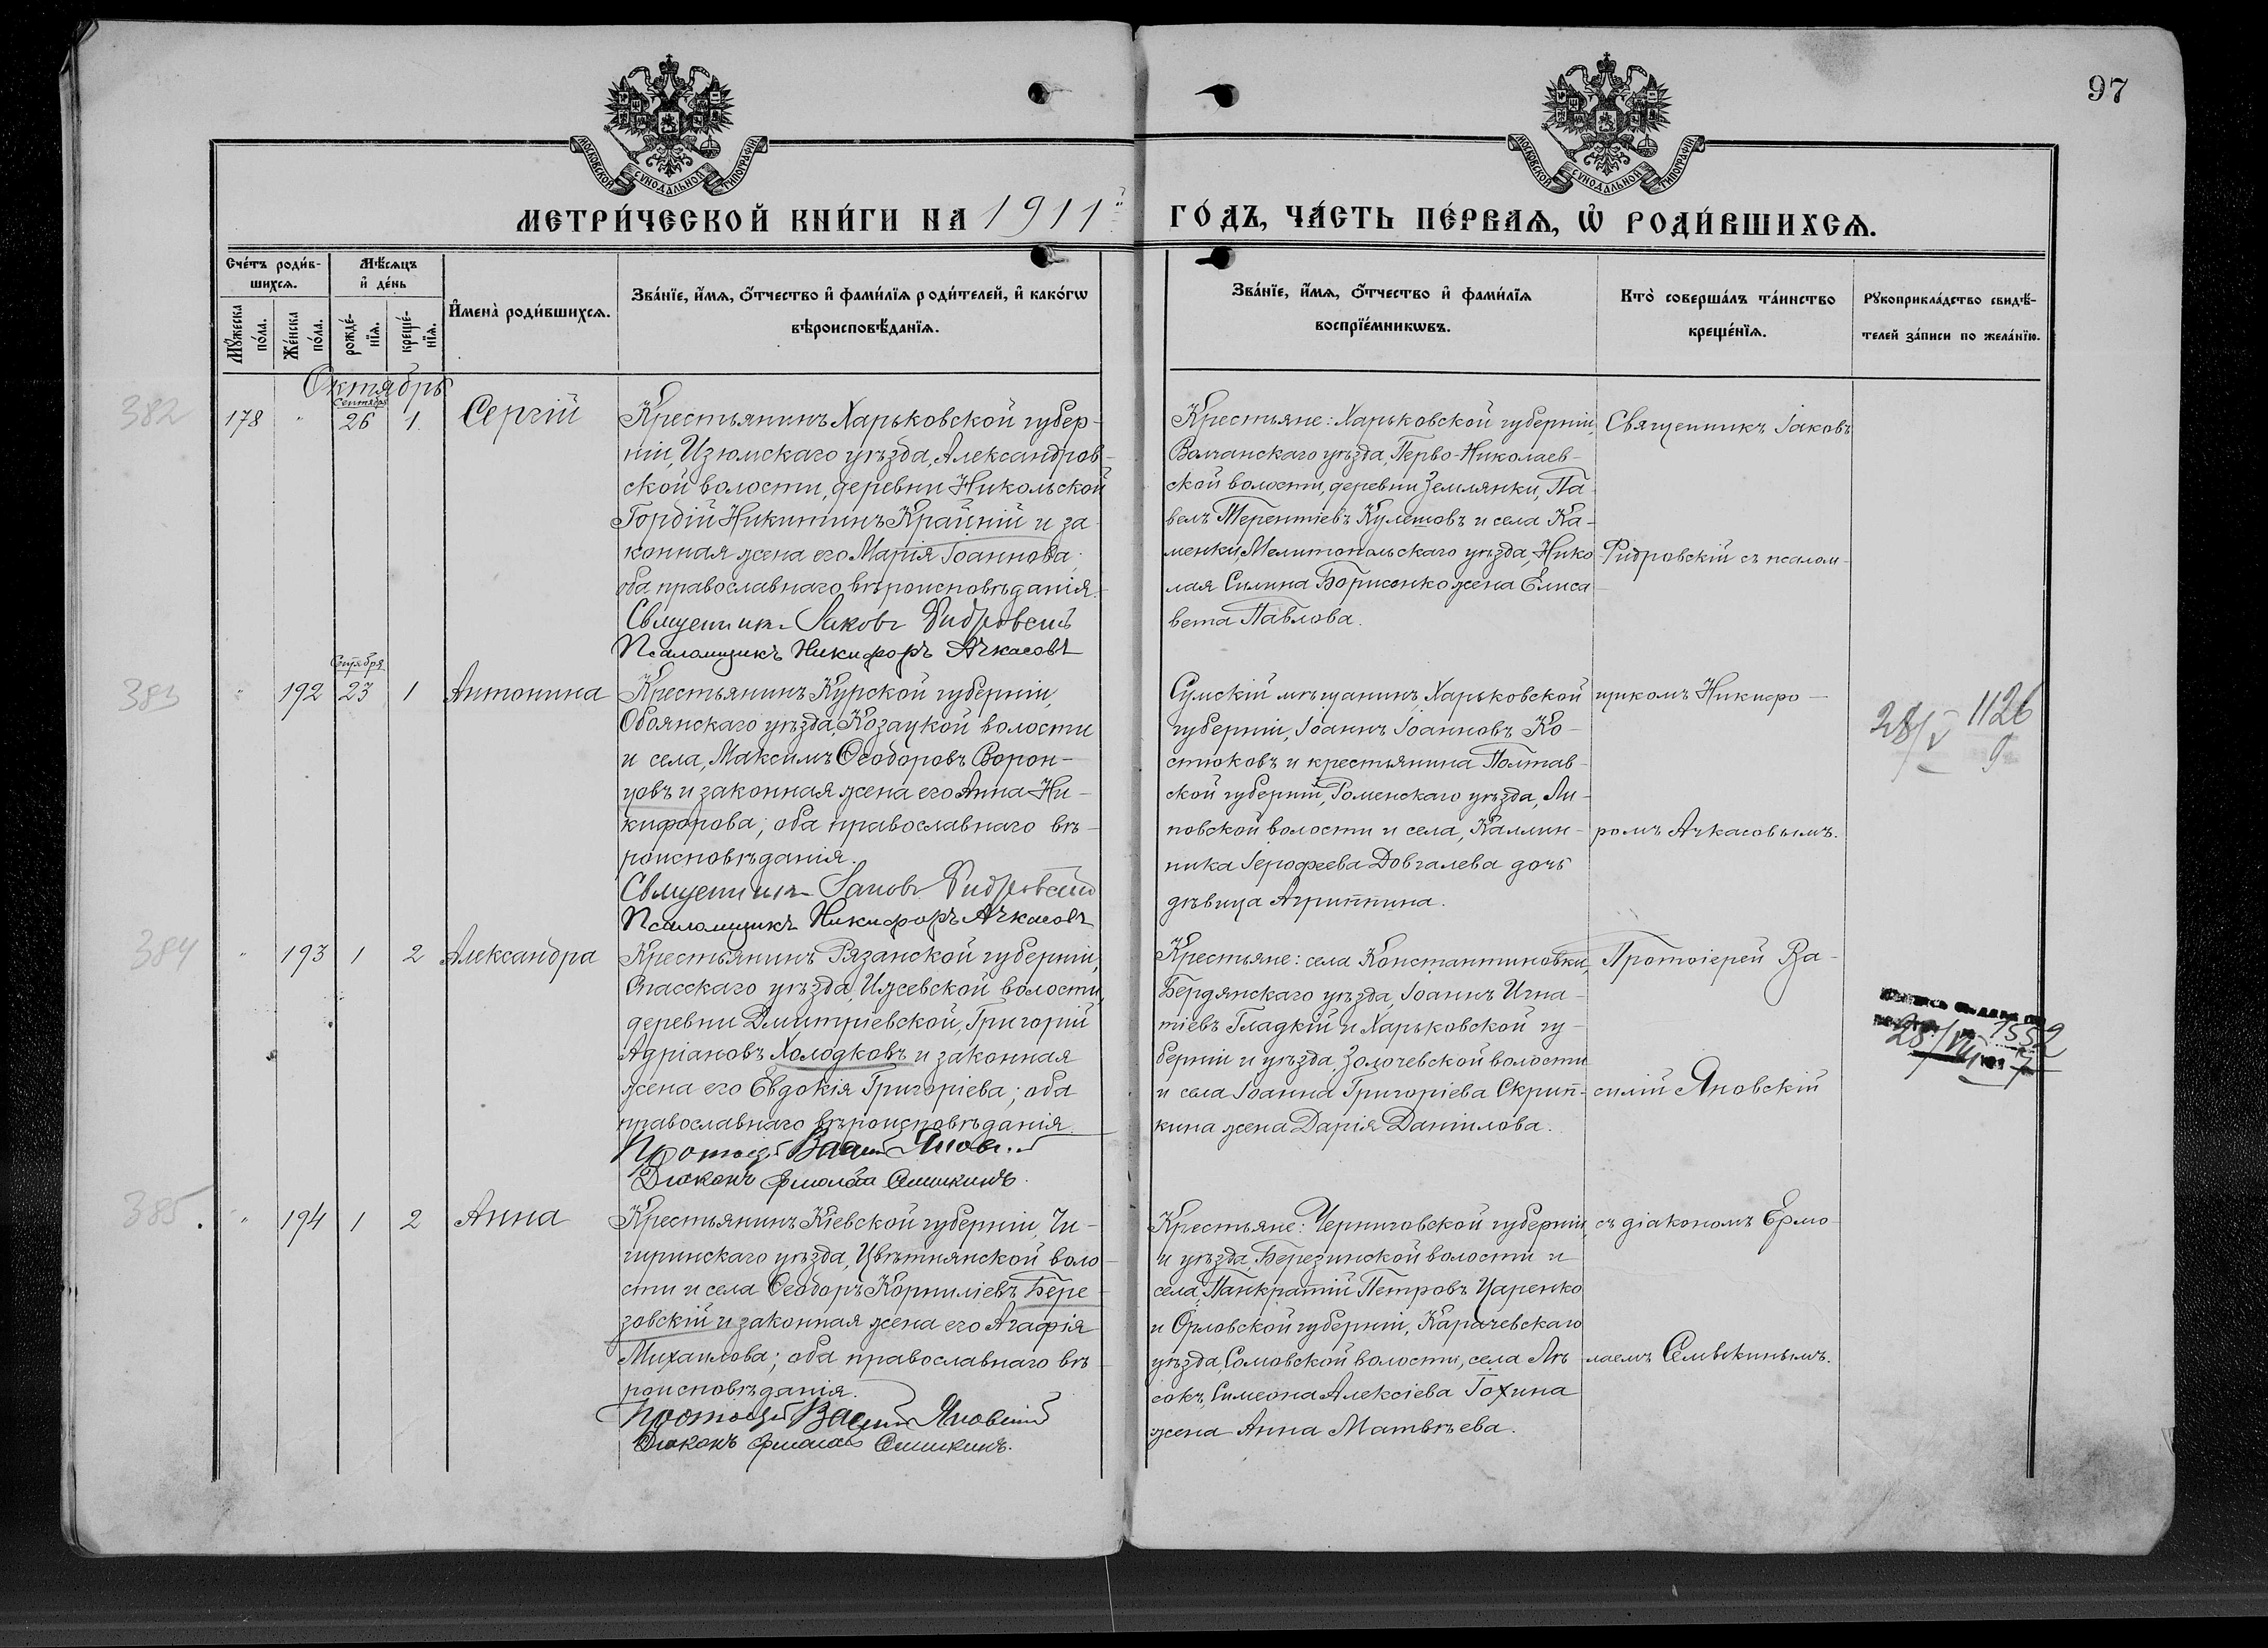 97
МОСКОВСКОЙ СѴНОДАЛЬНОЙ ТИПОГРАФІИ
МОСКОВСКОЙ СѴНОДАЛЬНОЙ ТИПОГРАФІИ
МЕТРИ́ЧЕСКОЙ КНИ́ГИ НА 1911й ГО́ДЪ, ЧА́СТЬ ПЕ́РВАѦ, Ѡ҆ РОДИ́ВШИХСѦ.
Сче́тъ роди́в-
шихсѧ.
Мѣ́сѧцъ
и҆ де́нь
Мꙋ́жеска
по́ла.
Же́нска
по́ла.
рожде́-
нїѧ.
креще́-
нїѧ.
И҆мена̀ роди́вшихсѧ.
Зва́нїе, и҆́мѧ, ѻ҆́тчество и҆ фами́лїѧ роди́телей, и҆ како́гѡ
вѣроисповѣ́данїѧ.
Зва́нїе, и҆́мѧ, ѻ҆́тчество и҆ фами́лїѧ
воспрїе́мникѡвъ.
Кто̀ соверша́лъ та́инство
креще́нїѧ.
Рꙋкоприкла́дство свидѣ́-
телей за́писи по жела́нїю.
Октябрь
382
178 " Сентября 26 1. Сергій
Крестьянинъ Харьковской губер-
ніи, Изюмскаго уѣзда, Александров-
ской волости, деревни Никольской
Гордій Никитинъ Крайній и за-
конная жена его Марія Іоаннова;
оба православнаго вѣроисповѣданія.
Священникъ Іаковъ Ридровскій
Псаломщикъ Никифоръ Ачкасовъ
Крестьяне: Харьковской губерніи,
Волчанскаго уѣзда, Перво-Николаев-
ской волости, деревни Землянки, Па-
велъ Терентіевъ Кулешовъ и села Ка-
менки, Мелитопольскаго уѣзда, Нико-
лая Силина Борисенко жена Елиса-
вета Павлова.
Священникъ Іаковъ
Ридровскій съ псалом-
383
" 192 Сентября 23 1 Антонина
Крестьянинъ Курской губерніи,
Обоянскаго уѣзда, Козацкой волости
и села, Максимъ Ѳеодоровъ Ворон-
цовъ и законная жена его Анна Ни-
кифорова; оба православнаго вѣ-
роисповѣданія.
Священникъ Іаковъ Ридровскій
Псаломщикъ Никифоръ Ачкасовъ
Сумскій мѣщанинъ, Харьковской
губерніи, Іоаннъ Іоанновъ Ко-
стюковъ и крестьянина Полтав-
ской губерніи, Роменскаго уѣзда, Ли-
повской волости и села, Каллин-
ника Іерофеева Довгалева дочь
дѣвица Агриппина.
щикомъ Никифо-
ромъ Ачкасовымъ.
28/V 1126
9
384
" 193 1 2 Александра
Крестьянинъ Рязанской губерніи,
Спасскаго уѣзда, Ижевской волости,
деревни Дмитріевской, Григорій
Адріановъ Холодковъ и законная
жена его Евдокія Григоріева; оба
православнаго вѣроисповѣданія.
Протоіерей Василій Яновскій
Діаконъ Ермолай Семыкинъ.
Крестьяне: села Константиновки,
Бердянскаго уѣзда, Іоаннъ Игна-
тіевъ Гладкій и Харьковской гу-
берніи и уѣзда, Золочевской волости
и села Іоанна Григоріева Скрип-
кина жена Дарія Даніилова.
Протоіерей Ва-
силій Яновскій
28/VII 1552
7
385.
" 194 1 2 Анна
Крестьянинъ Кіевской губерніи, Чи-
гиринскаго уѣзда, Цвѣтнянской воло-
сти и села Ѳеодоръ Корниліевъ Бере-
зовскій и законная жена его Агафія
Михаилова; оба православнаго вѣ-
роисповѣданія.
Протоіерей Василій Яновскій
Діаконъ Ермолай Семыкинъ.
Крестьяне: Черниговской губерніи,
и уѣзда, Березинской волости и
села, Панкратій Петровъ Царенко
и Орловской губерніи, Карачевскаго
уѣзда, Сомовской волости, села Лѣ-
сокъ, Симеона Алексіева Гохина
жена Анна Матвѣева.
съ діакономъ Ермо-
лаемъ Семыкинымъ.